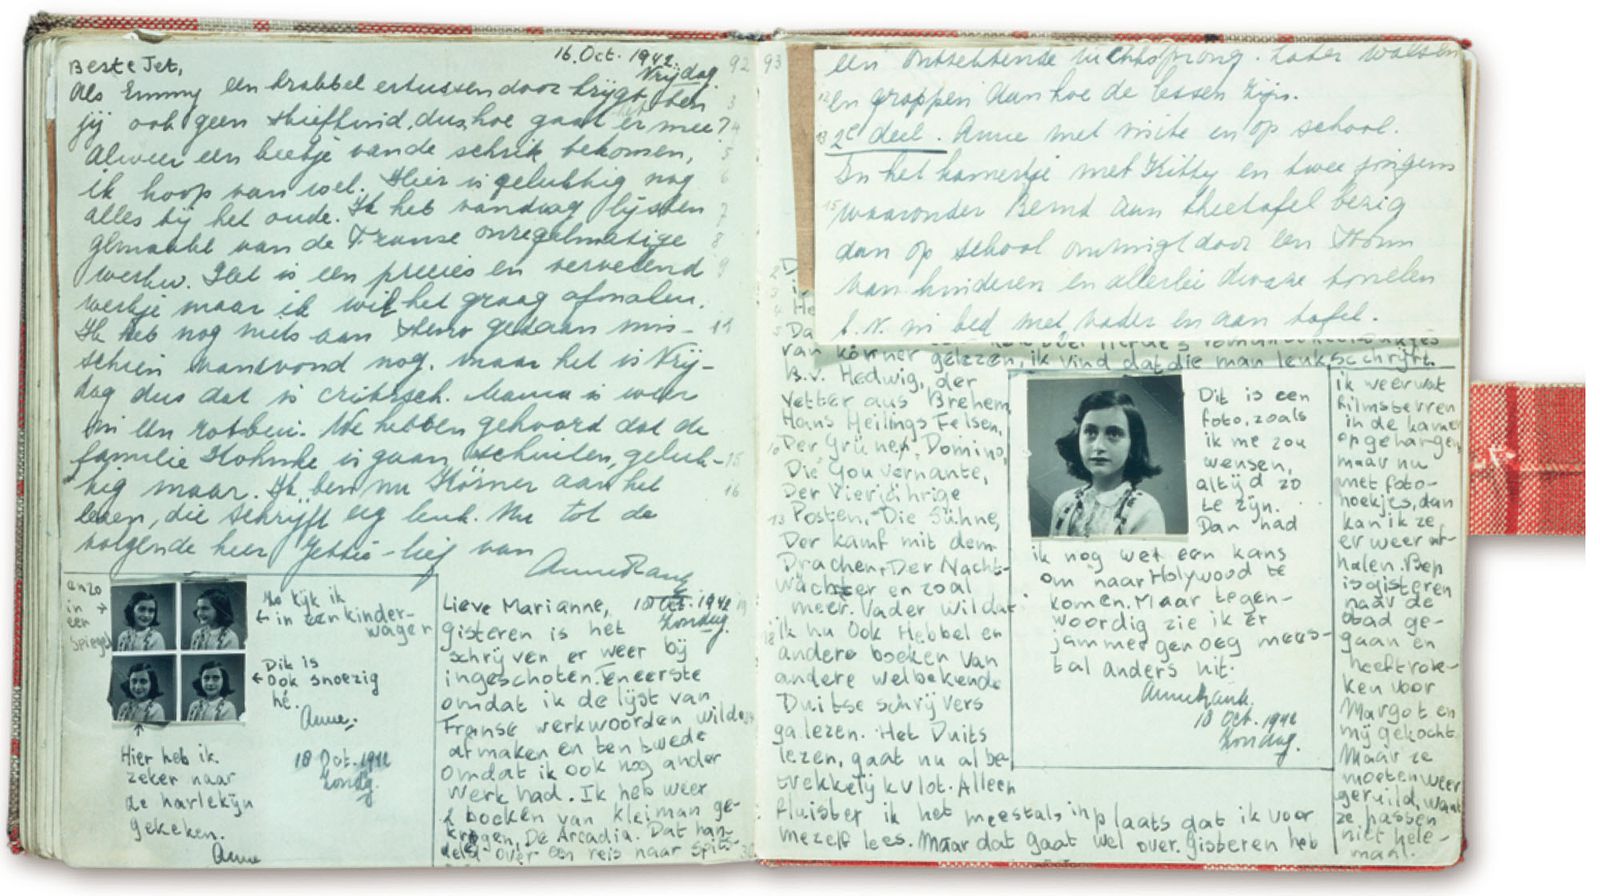 16 Oct. 1942.
Vrijdag.
92
Beste Jet,
Als Emmy een krabbel ertussendoor krijgt, ben
jij ook geen stiefkind, dus hoe gaat het er mee?
Alweer een beetje van de schrik bekomen,
ik hoop van wel. Hier is gelukkig nog
alles bij het oude. Ik heb vandaag lijsten
gemaakt van de Franse onregelmatige
werkw. Het is een precies en vervelend
werkje maar ik wil het graag afmaken.
Ik heb nog niets aan Steno gedaan mis-
schien vanavond nog. maar het is Vrij-
dag dus dat is critisch. Mama is weer
in een rotbui. We hebben gehoord dat de
familie is gaan schuilen, geluk-
kig maar. Ik ben nu Körner aan het
lezen, die schrijft erg leuk. Nu tot de
volgende keer Jettie-lief van
Anne Frank
enzo
in
een
spiegel
Zo kijk ik
in een kinder-
wagen
Dit is
ook snoezig
hé.
Anne.
18 Oct. 1942
Zondag.
Hier heb ik
zeker naar
de harlekijn
gekeken.
Anne
Lieve Marianne,
18 Oct. 1942
Zondag.
Gisteren is het
schrijven er weer bij
ingeschoten. Teneerste
omdat ik de lijst van
Franse werkwoorden wilde
afmaken en ten twede
omdat ik ook nog ander
werk had. Ik heb weer
2 boeken van kleiman ge-
kregen. De Arcadia. Dat han-
deld over een reis naar Spits-
93
een ontzettende luchtsprong. Later walsen
en grappen dan hoe de lessen zijn.
2e deel. Anne met visite en op school.
In het kamertje met Kitty en twee jongens
waaronder Bernd aan theetafel bezig
dan op school omringt door een stoom
van kinderen en allerlei dwaze tonelen
b.v. in bed met vader en aan tafel.
van körner gelezen, ik vind dat die man leuk schrijft.
B.v. Hedwig, der
Vetter aus Brehem,
Hans Heilings Felsen,
Der Grüner Domino,
Die Gouvernante,
Der Vierjährige
Posten, Die Sühne,
Der kamf mit dem
Drachen, Der Nacht-
wächter en zoal
meer. Vader wil dat
ik nu ook Hebbel en
andere boeken van
andere welbekende
Duitse schrijvers
ga lezen. Het Duits
lezen, gaat nu al be-
trekkelijk vlot. Alleen
fluister ik het meestal inplaats dat ik voor
mezelf lees. Maar dat gaat wel over. Gisteren heb
Dit is een
foto, zoals
ik me zou
wensen,
altijd zo
te zijn.
Dan had
ik nog wel een kans
om naar Holywood te
komen. Maar tegen-
woordig zie ik er
jammer genoeg mees-
tal anders uit.
Annefrank.
18 Oct. 1942
Zondag.
ik weer wat
filmsterren
in de kamer
opgehangen
maar nu
met foto-
hoekjes, dan
kan ik ze
er weer uit-
halen. Bep
is gisteren
naar de
stad ge-
gaan en
heeft rok-
ken voor
Margot en
mij gekocht.
Maar ze
moeten weer
geruild, want
ze passen
niet hele-
maal.